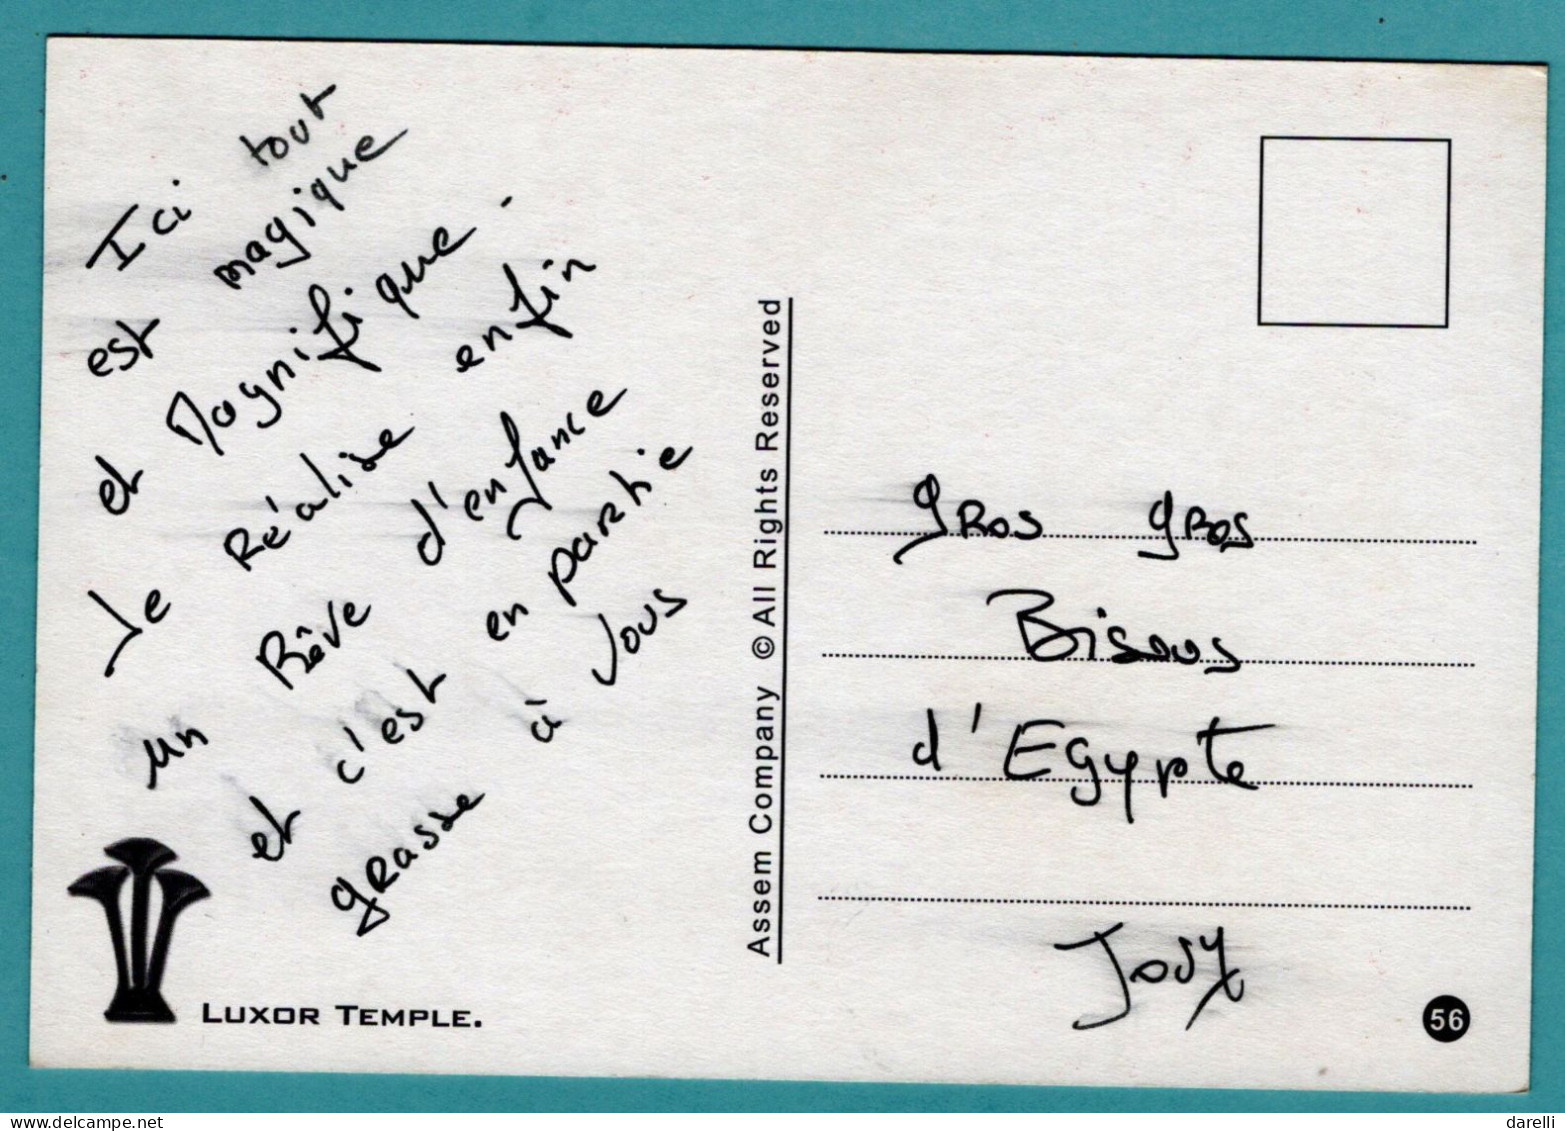 Ici tout
est magique
et Magnifique.
Je Réalise enfin
un Rêve d'enfance
et c'est en partie
grasse à vous
gros gros
Bisous
d'Egypte
LUXOR TEMPLE.
Assem Company © All Rights Reserved
56
darelli